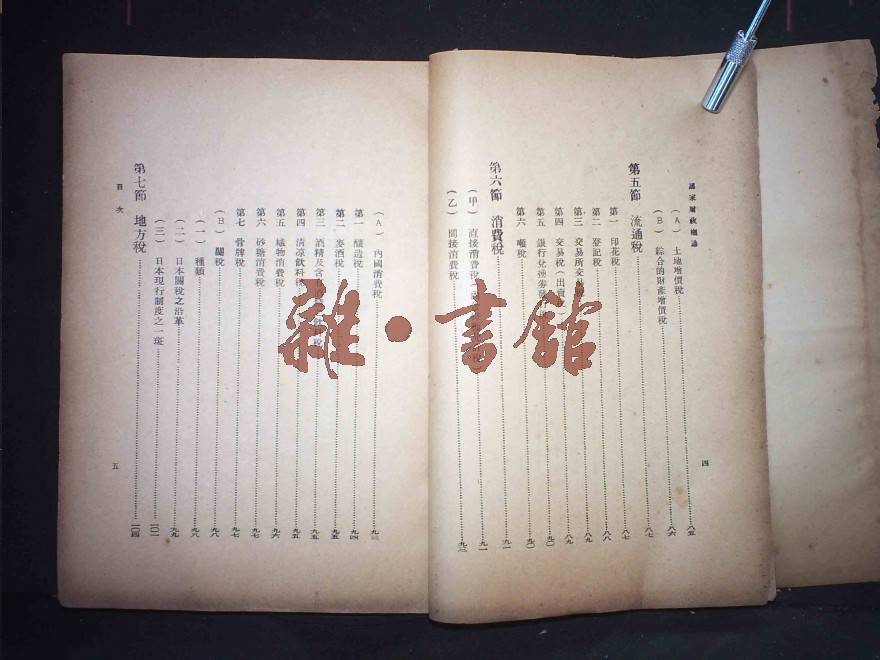 國家財政概論
(A) 土地增價稅 八五
(B) 綜合的財產增價稅 八六
第五節 流通稅 八七
第一 印花稅 八七
第二 登記稅 八八
第三 交易所交易 八九
第四 交易稅(出賣 八九
第五 銀行兌換劵發 九〇
第六 噸稅 九〇
第六節 消費稅 九一
(甲) 直接消費稅 九一
(乙) 間接消費稅 九三
四
(A) 內國消費稅 九三
第一 釀造稅 九四
第二 麥酒稅 九五
第三 酒精及含 稅 九五
第四 清涼飲料稅 九五
第五 織物消費稅 九六
第六 砂糖消費稅 九七
第七 骨牌稅 九七
(B) 關稅 九八
(一) 種類 九八
(二) 日本關稅之沿革 九九
(三) 日本現行制度之一斑 一〇二
第七節 地方稅 一〇四
目次
五
雜·書館